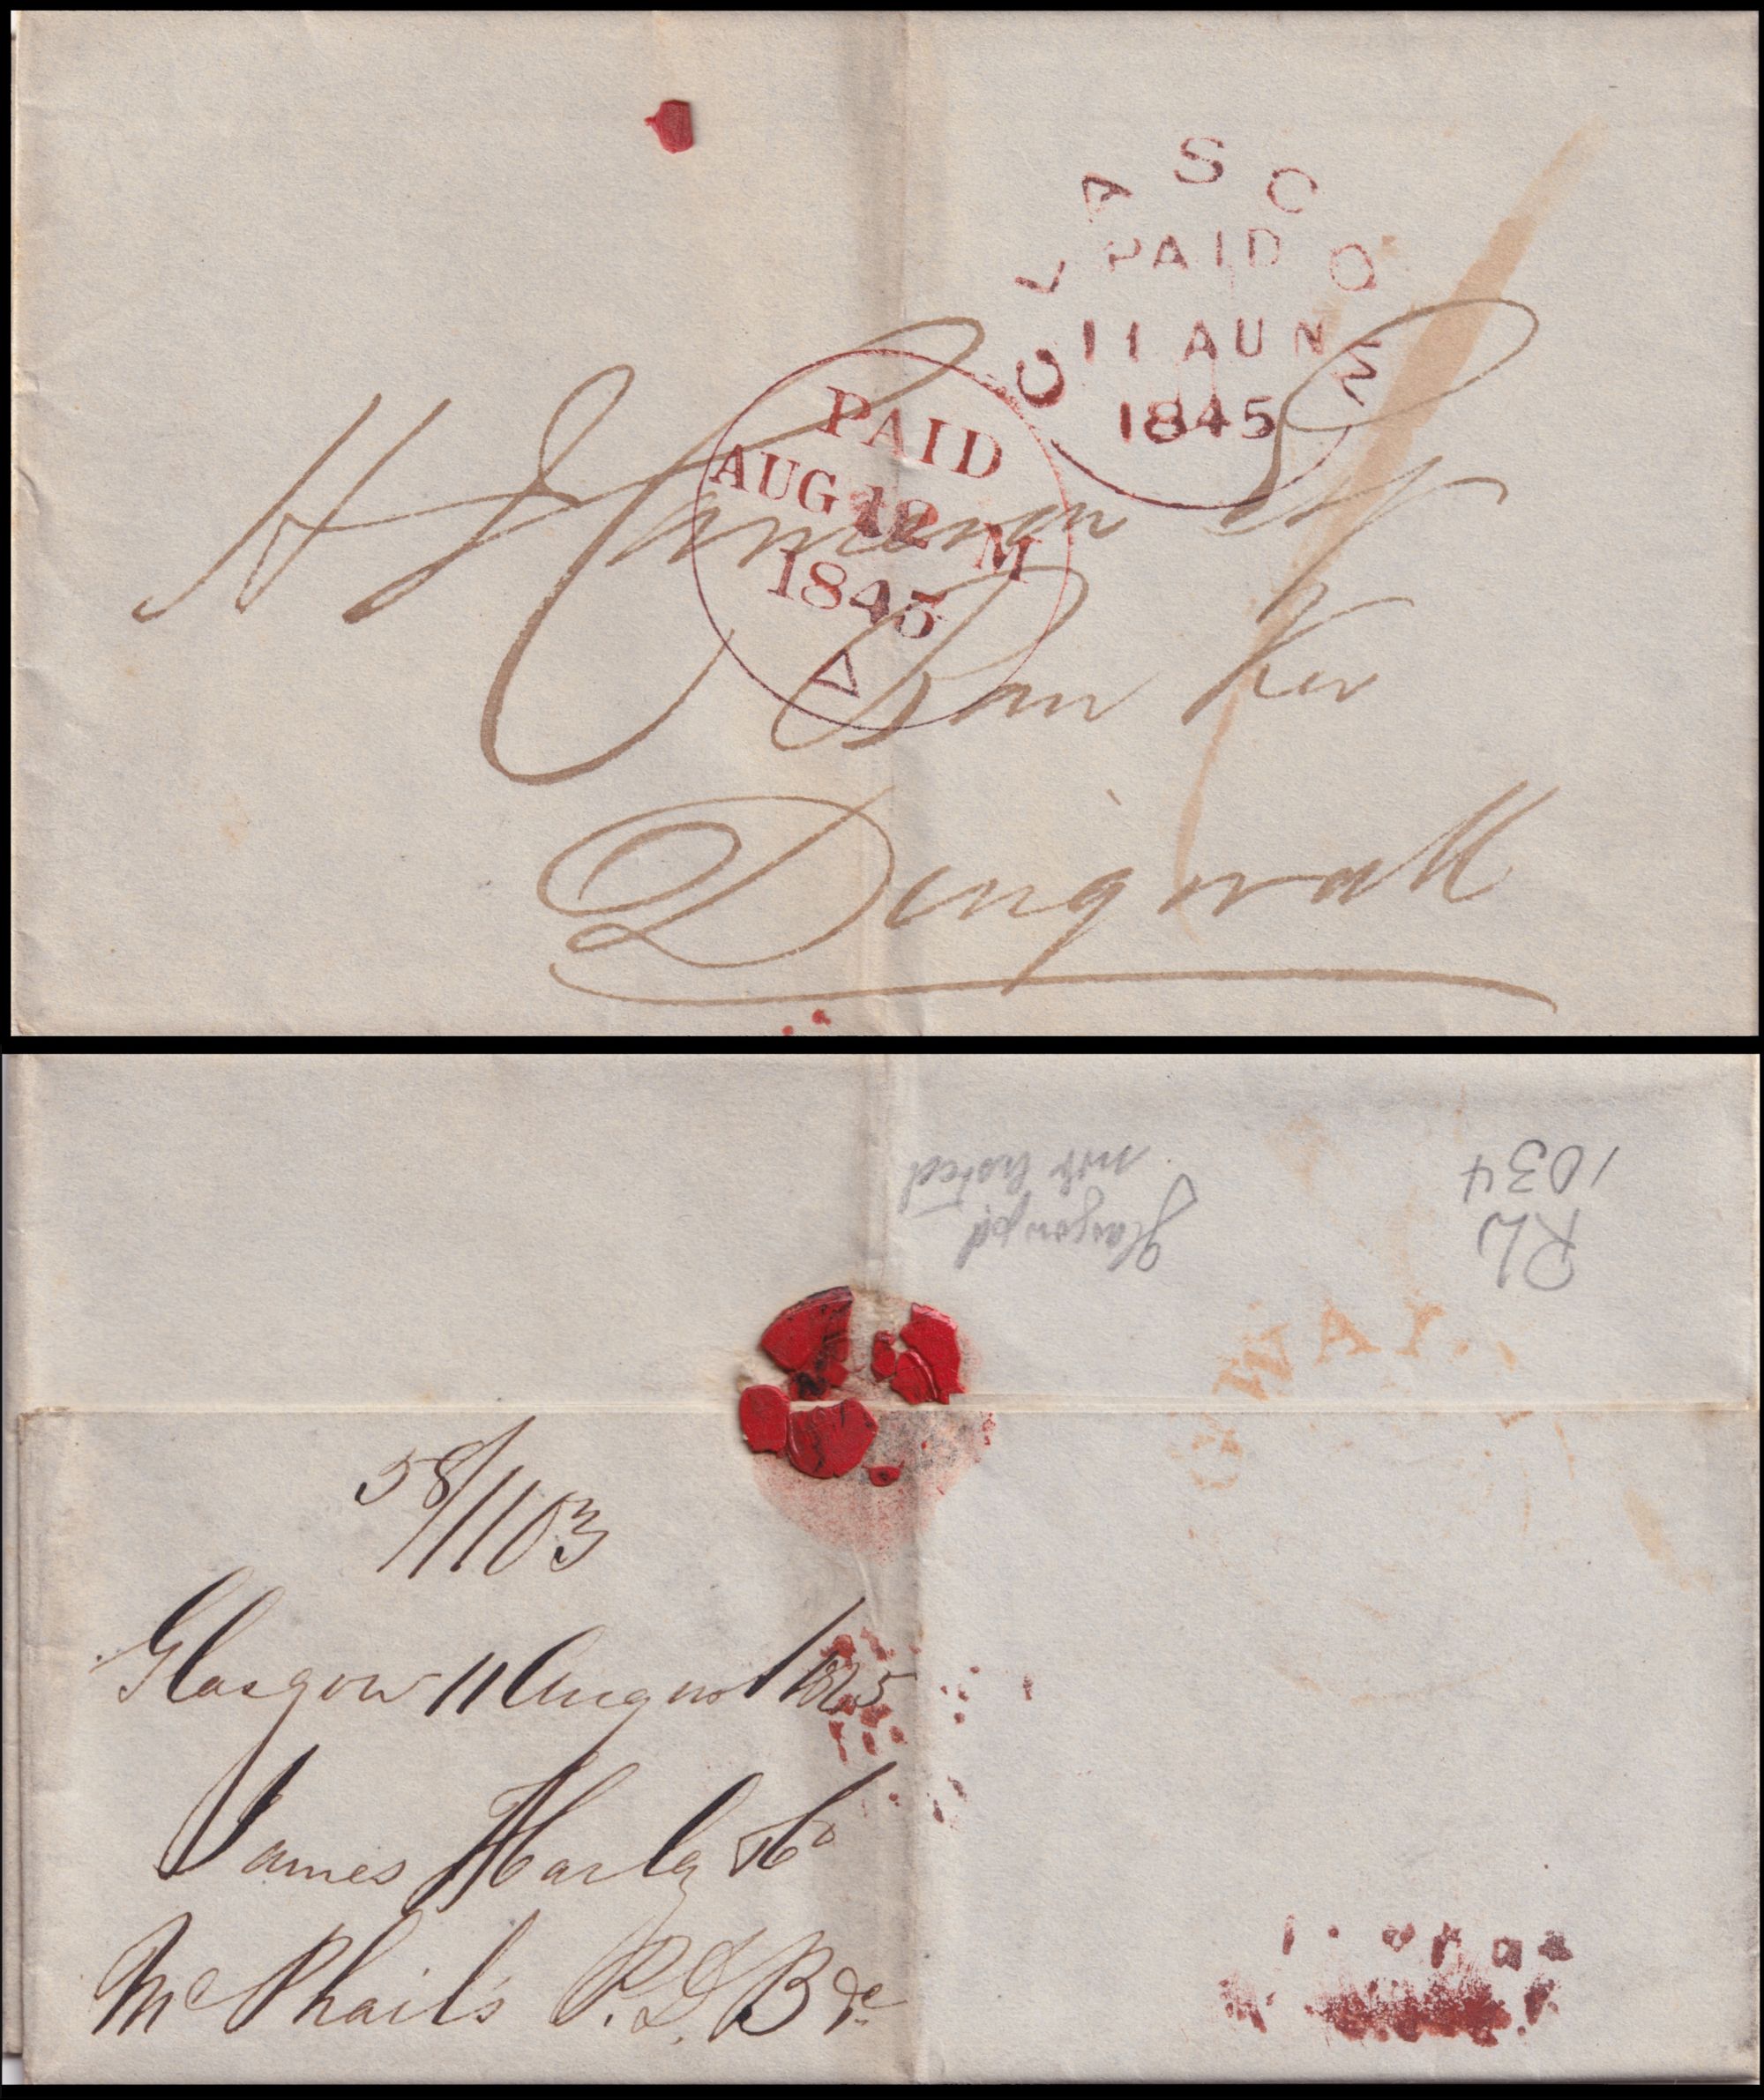 GLASGOW
PAID
11 AU N
1845
PAID
AUG 12 M
1845
H J Cameron Esqr
Banker
Dingwall
1034
RL
not noted
Glasgow pd
WAY
58/1103
Glasgow 11 August 1845
James & Co
McPhail's P. & B &c